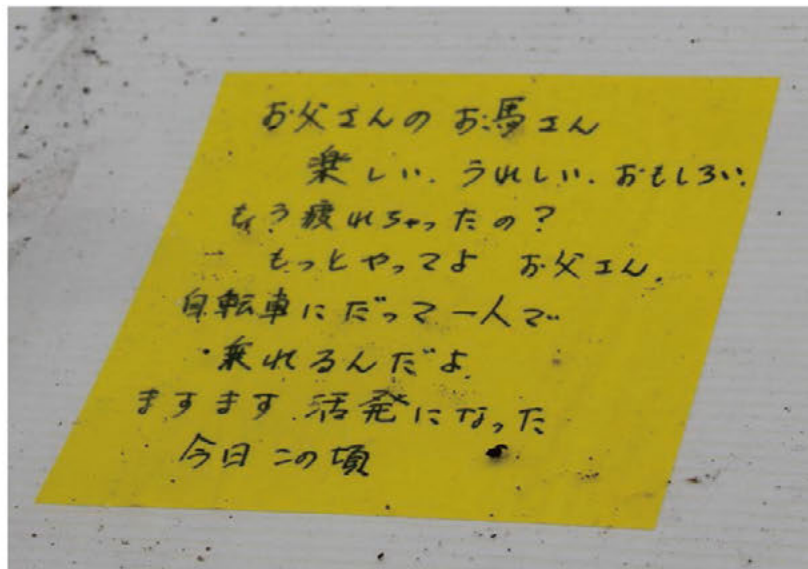 お父さんのお馬さん
楽しい、うれしい、おもしろい、
もう疲れちゃったの?
もっとやってよ お父さん、
自転車にだって一人で
乗れるんだよ、
ますます活発になった
今日この頃